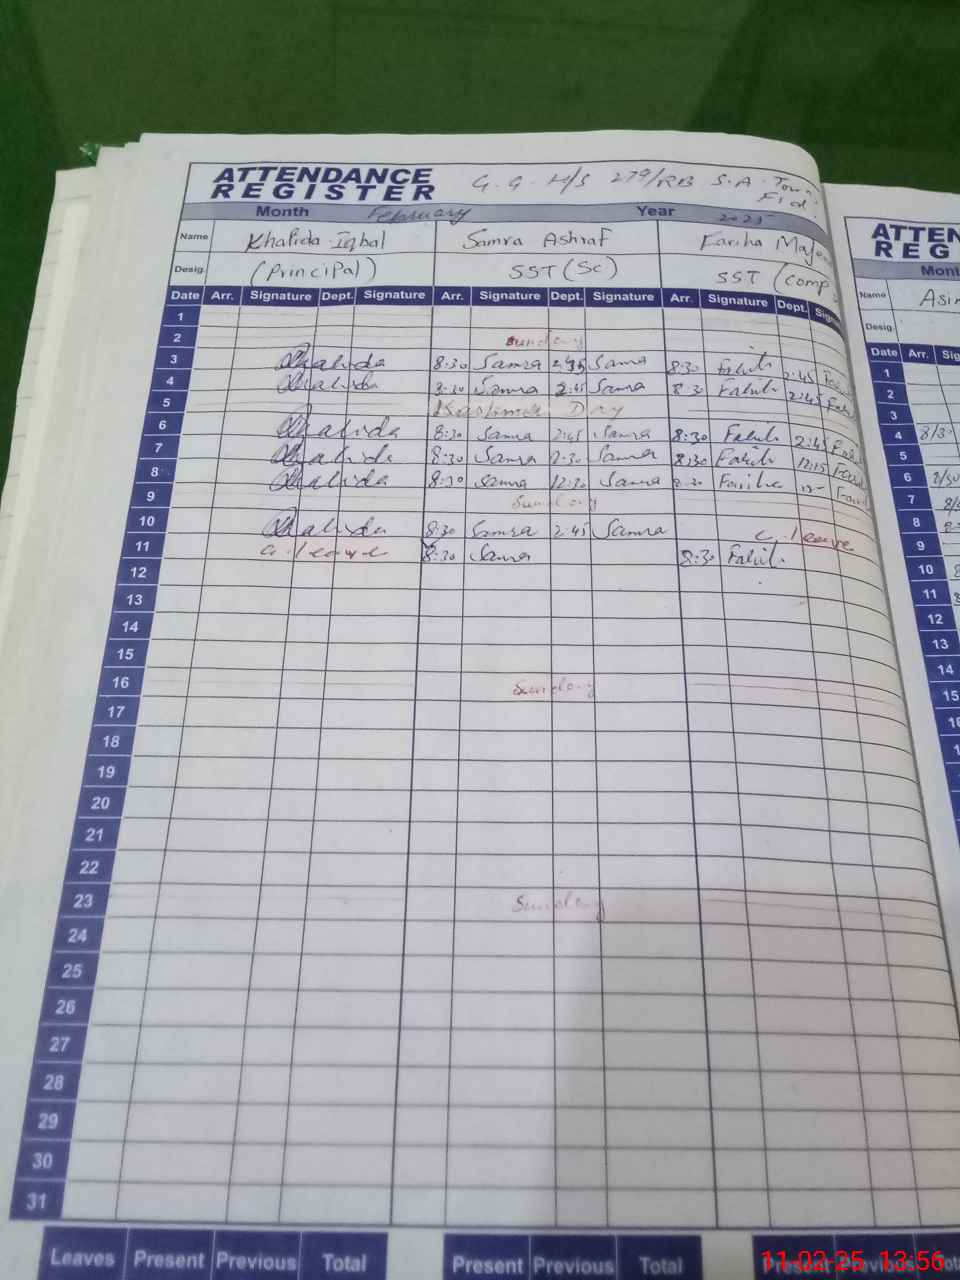 ATTENDANCE REGISTER G.G.H/S 279/RB S.A. Town Fsd.
Month February Year 2025
Name Khalida Iqbal Samra Ashraf Fariha Maje
Desig. (Principal) SST (Sc) SST (Comp
Date Arr. Signature Dept. Signature Arr. Signature Dept. Signature Arr. Signature Dept. Sign
1
2 Sunday
3 Khalida 8:30 Samra 2:45 Samra 8:30 2:45
4 Khalida 8:30 Samra 2:45 Samra 8:30 2:45
5 Kashmir Day
6 Khalida 8:30 Samra 2:45 Samra 8:30 2:45
7 Khalida 8:30 Samra 12:30 Samra 8:30 12:15
8 Khalida 8:30 Samra 12:30 Samra 8:30 Fariha
9 Sunday
10 Khalida 8:30 Samra 2:45 Samra C. leave
11 leave 8:30 Samra 8:30
12
13
14
15
16 Sunday
17
18
19
20
21
22
23 Sunday
24
25
26
27
28
29
30
31
Leaves Present Previous Total Present Previous Total Present Previous
ATTEN
REG
Mont
Name Asi
Desig.
Date Arr. Sig
1
2
3
4 8/30
5
6
7
8
9
10
11
12
13
14
15
11-02-25 13:56